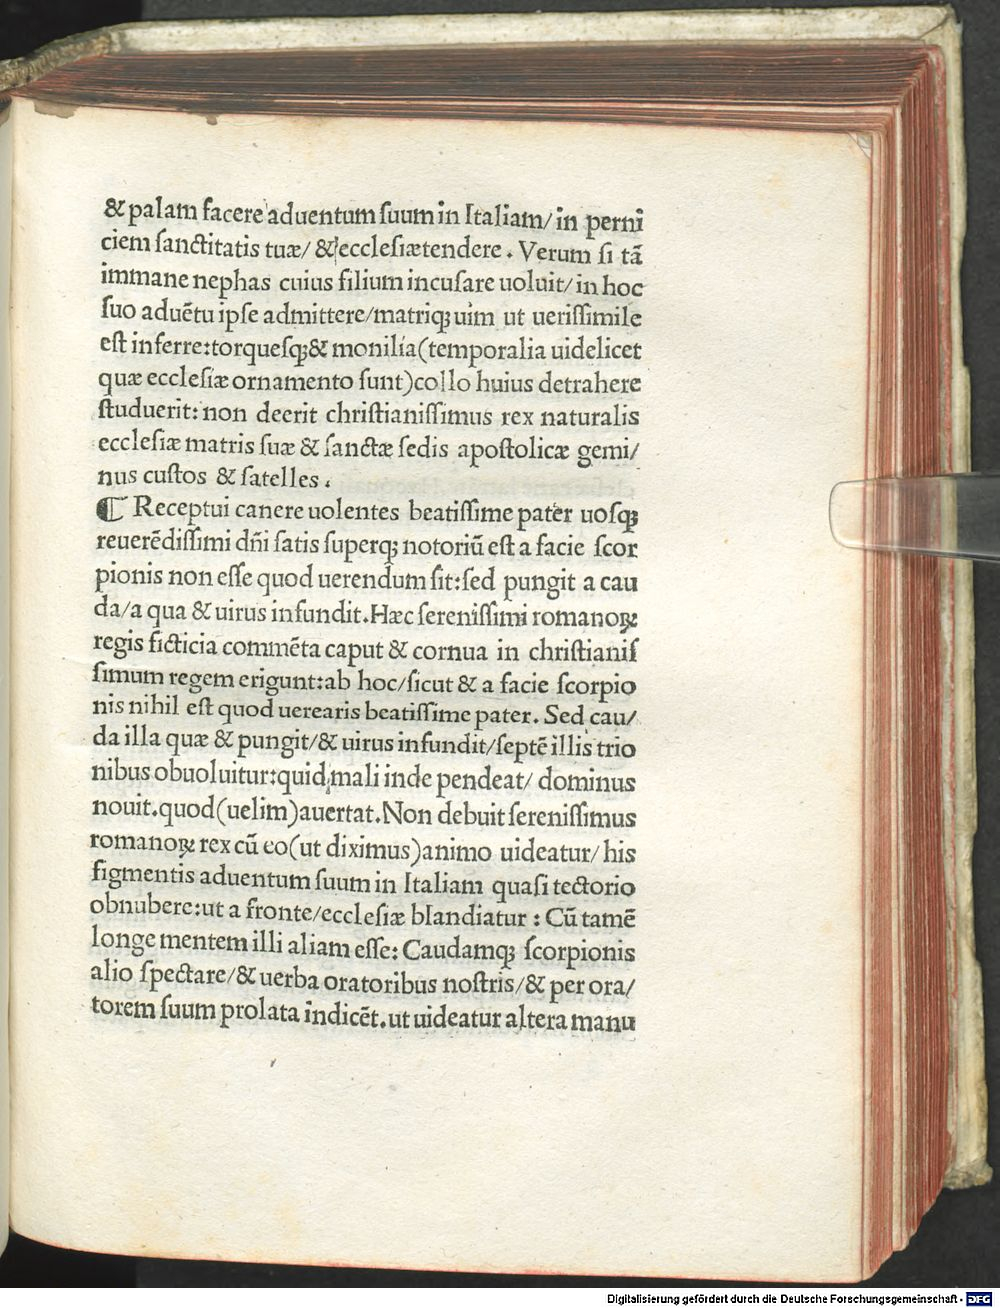 & palam facere aduentum ſuum in Italiam/ in perni
ciem ſanctitatis tuæ/ & eccleſiætendere. Verum ſi tã
immane nephas cuius filium incuſare uoluit/ in hoc
ſuo aduẽtu ipſe admittere/matriqꝫ uim ut ueriſſimile
eſt inferre:torqueſqꝫ& monilia(temporalia uidelicet
quæ eccleſiæ ornamento ſunt)collo huius detrahere
ſtuduerit: non deerit chriſtianiſſimus rex naturalis
eccleſiæ matris ſuæ & ſanctæ ſedis apoſtolicæ gemi/
nus cuſtos & ſatelles.
¶ Receptui canere uolentes beatiſſime pater uoſqꝫ
reuerẽdiſſimi dñi ſatis ſuperqꝫ notoriũ eſt a facie ſcor
pionis non eſſe quod uerendum ſit:ſed pungit a cau
da/a qua & uirus infundit.Hæc ſereniſſimi romanoꝝ
regis ficticia commẽta caput & cornua in chriſtianiſ
ſimum regem erigunt:ab hoc/ſicut & a facie ſcorpio
nis nihil eſt quod uerearis beatiſſime pater. Sed cau/
da illa quæ & pungit/& uirus infundit/ſeptẽ illis trio
nibus obuoluitur:quid mali inde pendeat/ dominus
nouit.quod(uelim)auertat.Non debuit ſereniſſimus
romanoꝝ rex cũ eo(ut diximus)animo uideatur/ his
figmentis aduentum ſuum in Italiam quaſi tectorio
obnubere:ut a fronte/eccleſiæ blandiatur : Cũ tamẽ
longe mentem illi aliam eſſe: Caudamqꝫ ſcorpionis
alio ſpectare/& uerba oratoribus noſtris/& per ora/
torem ſuum prolata indicẽt.ut uideatur altera manu
Digitalisierung gefördert durch die Deutsche Forschungsgemeinschaft - DFG